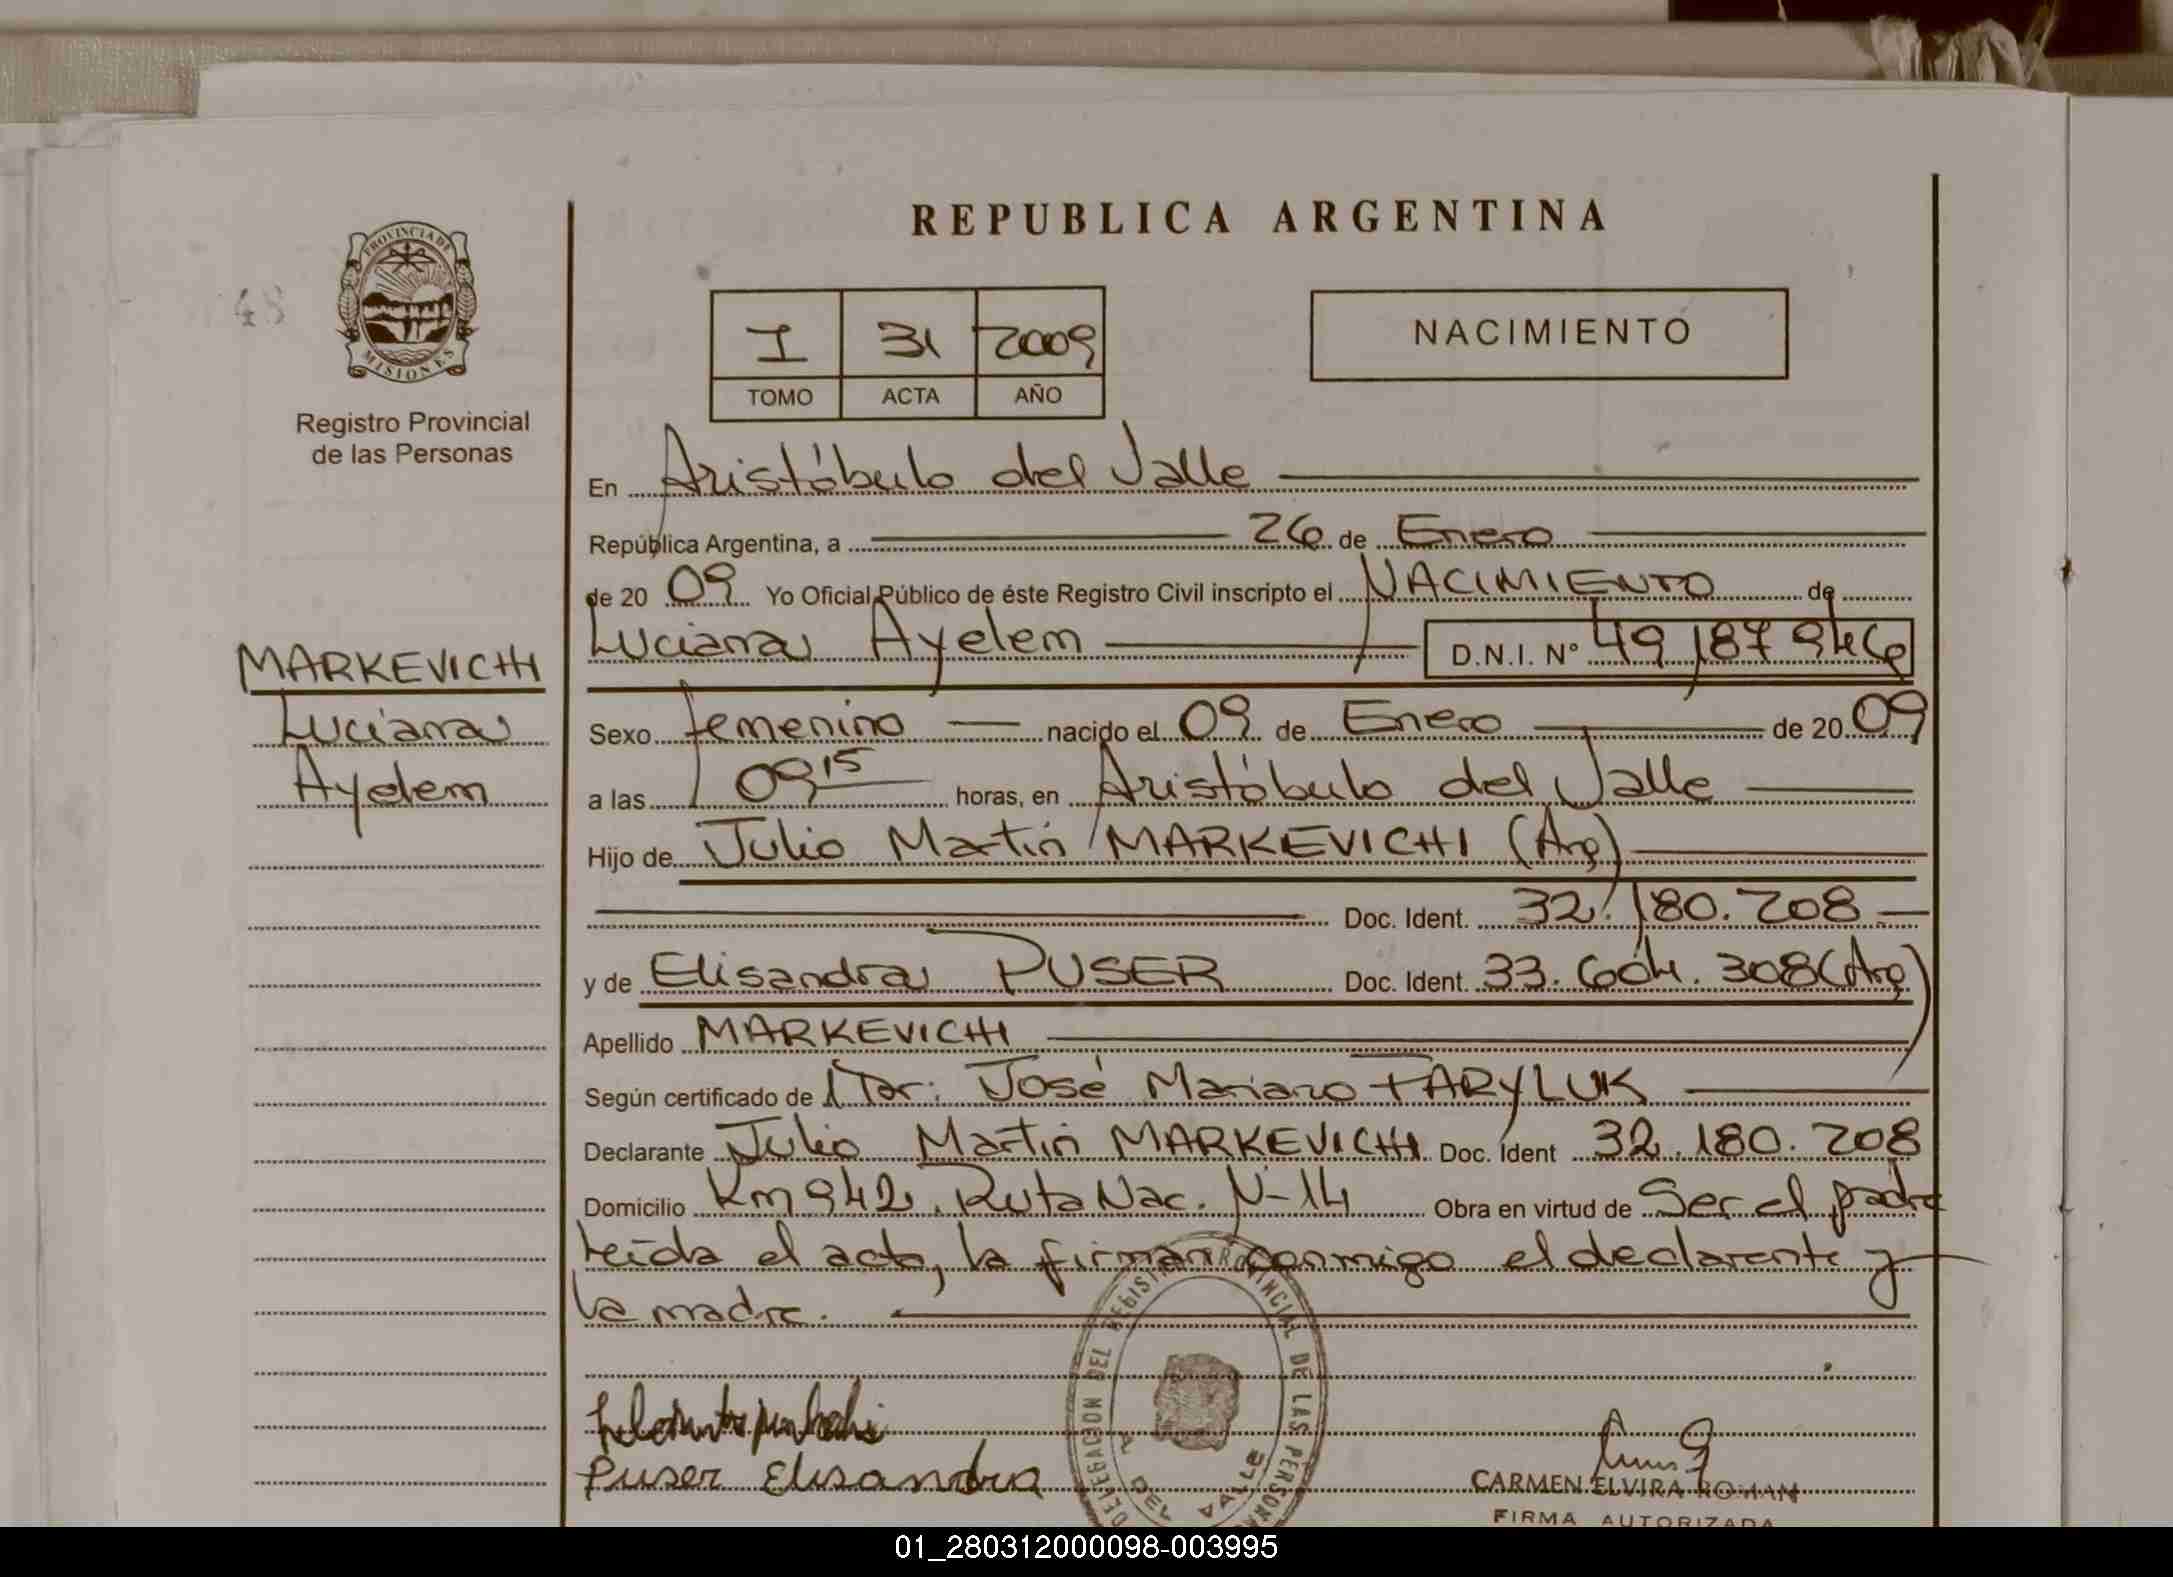 REPUBLICA ARGENTINA
PROVINCIA DE
MISIONES
48
Registro Provincial
de las Personas
I 31 2009
TOMO ACTA AÑO
NACIMIENTO
En Aristóbulo del Valle
República Argentina, a 26 de Enero
de 20 09 Yo Oficial Público de éste Registro Civil inscripto el NACIMIENTO de
Luciana Ayelem D.N.I. Nº 49.187.946
MARKEVICHI
Luciana
Ayelem
Sexo femenino nacido el 09 de Enero de 20 09
a las 09 15 horas, en Aristóbulo del Valle
Hijo de Julio Martin MARKEVICHI (Arg)
Doc. Ident. 32.180.208
y de Elisandra PUSER Doc. Ident. 33.604.308 (Arg)
Apellido MARKEVICHI
Según certificado de José Mariano TARYLUK
Declarante Julio Martin MARKEVICHI Doc. Ident 32.180.208
Domicilio Km 942. Ruta Nac. N-14 Obra en virtud de Ser el padre
Leída el acta, la firman conmigo el declarante y
la madre.
Puser Elisandra
DELEGACION DEL REGISTRO PROVINCIAL DE LAS PERSONAS
A DEL VALLE
CARMEN ELVIRA ROMAN
FIRMA AUTORIZADA
01_280312000098-003995